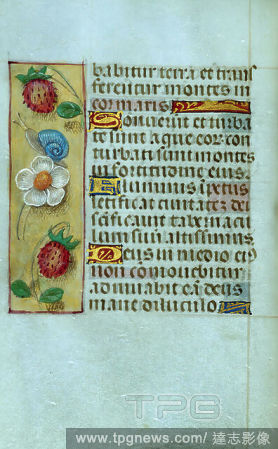 babitur terra et trans
ferentur montes in
cor maris.
Sonuerunt et turba
te sunt aque eor. con
turbati sunt montes
in fortitudine eius.
Fluminis impetus
letificat civitatez dei
scificauit tabernacu
lum suu altissimus
Deus in medio ei9
non comouebitur
adiuuabit ea deus
mane diluculo
TPG
www.tpgnews.com/達志影像